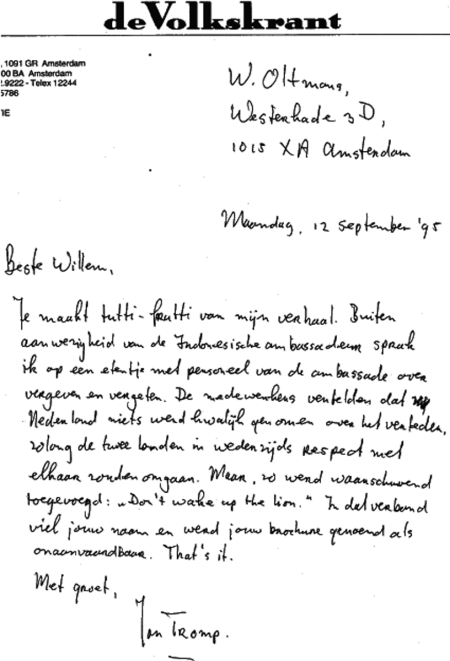 deVolkskrant
, 1091 GR Amsterdam
00 BA Amsterdam
.9222 - Telex 12244
5786
1E
W. Oltmans,
Westerkade 3D,
1015 XA Amsterdam
Maandag, 12 september '95
Beste Willem,
Je maakt tutti-frutti van mijn verhaal. Buiten
aanwezigheid van de Indonesische ambassadeur sprak
ik op een etentje met personeel van de ambassade over
vergeven en vergeten. De medewerkers vertelden dat
Nederland niets werd kwalijk genomen over het verleden,
zolang de twee landen in wederzijds respect met
elkaar zouden omgaan. Maar, zo werd waarschuwend
toegevoegd: „Don't wake up the lion." In dat verband
viel jouw naam en werd jouw brochure genoemd als
onaanvaardbaar. That's it.
Met groet,
Jan Tromp.